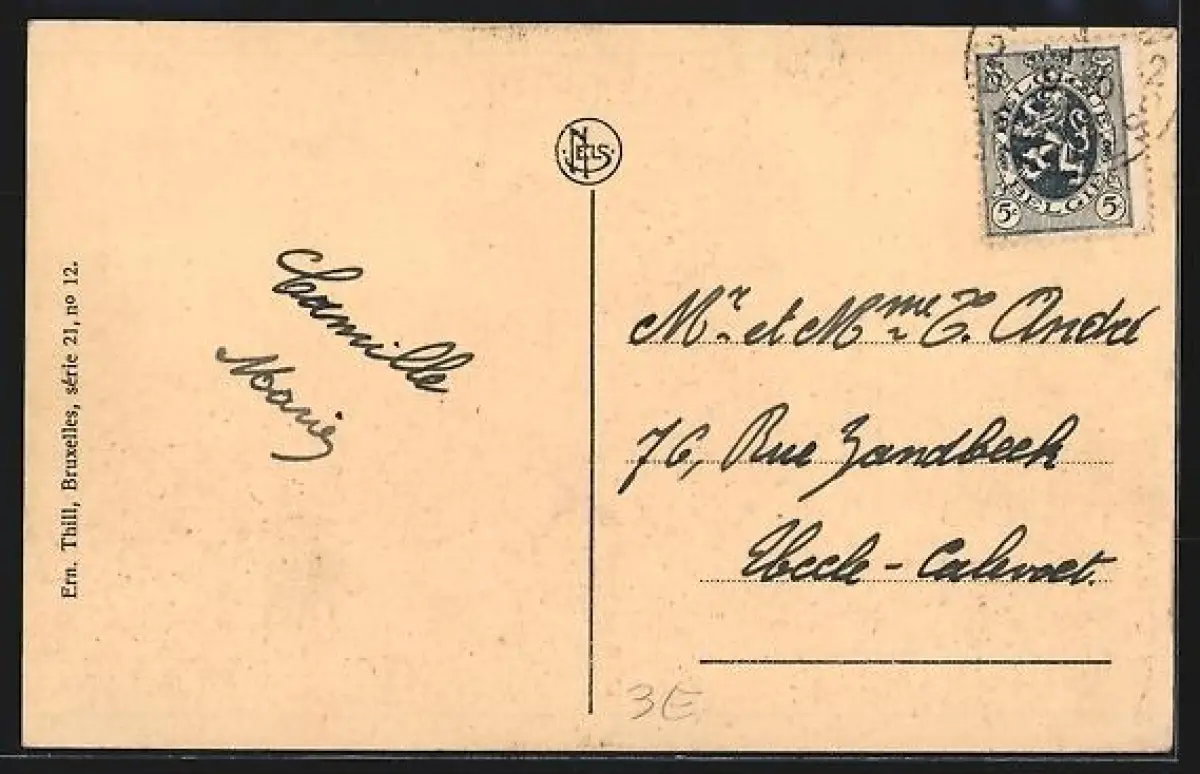 Ern. Thill, Bruxelles, série 21, nº 12.
NELS
Camille
Marie
BELGIQUE
BELGIE
5c 5c
Mr et Mme E. André
76, Rue Zandbeek
Uccle - Calevoet.
3E